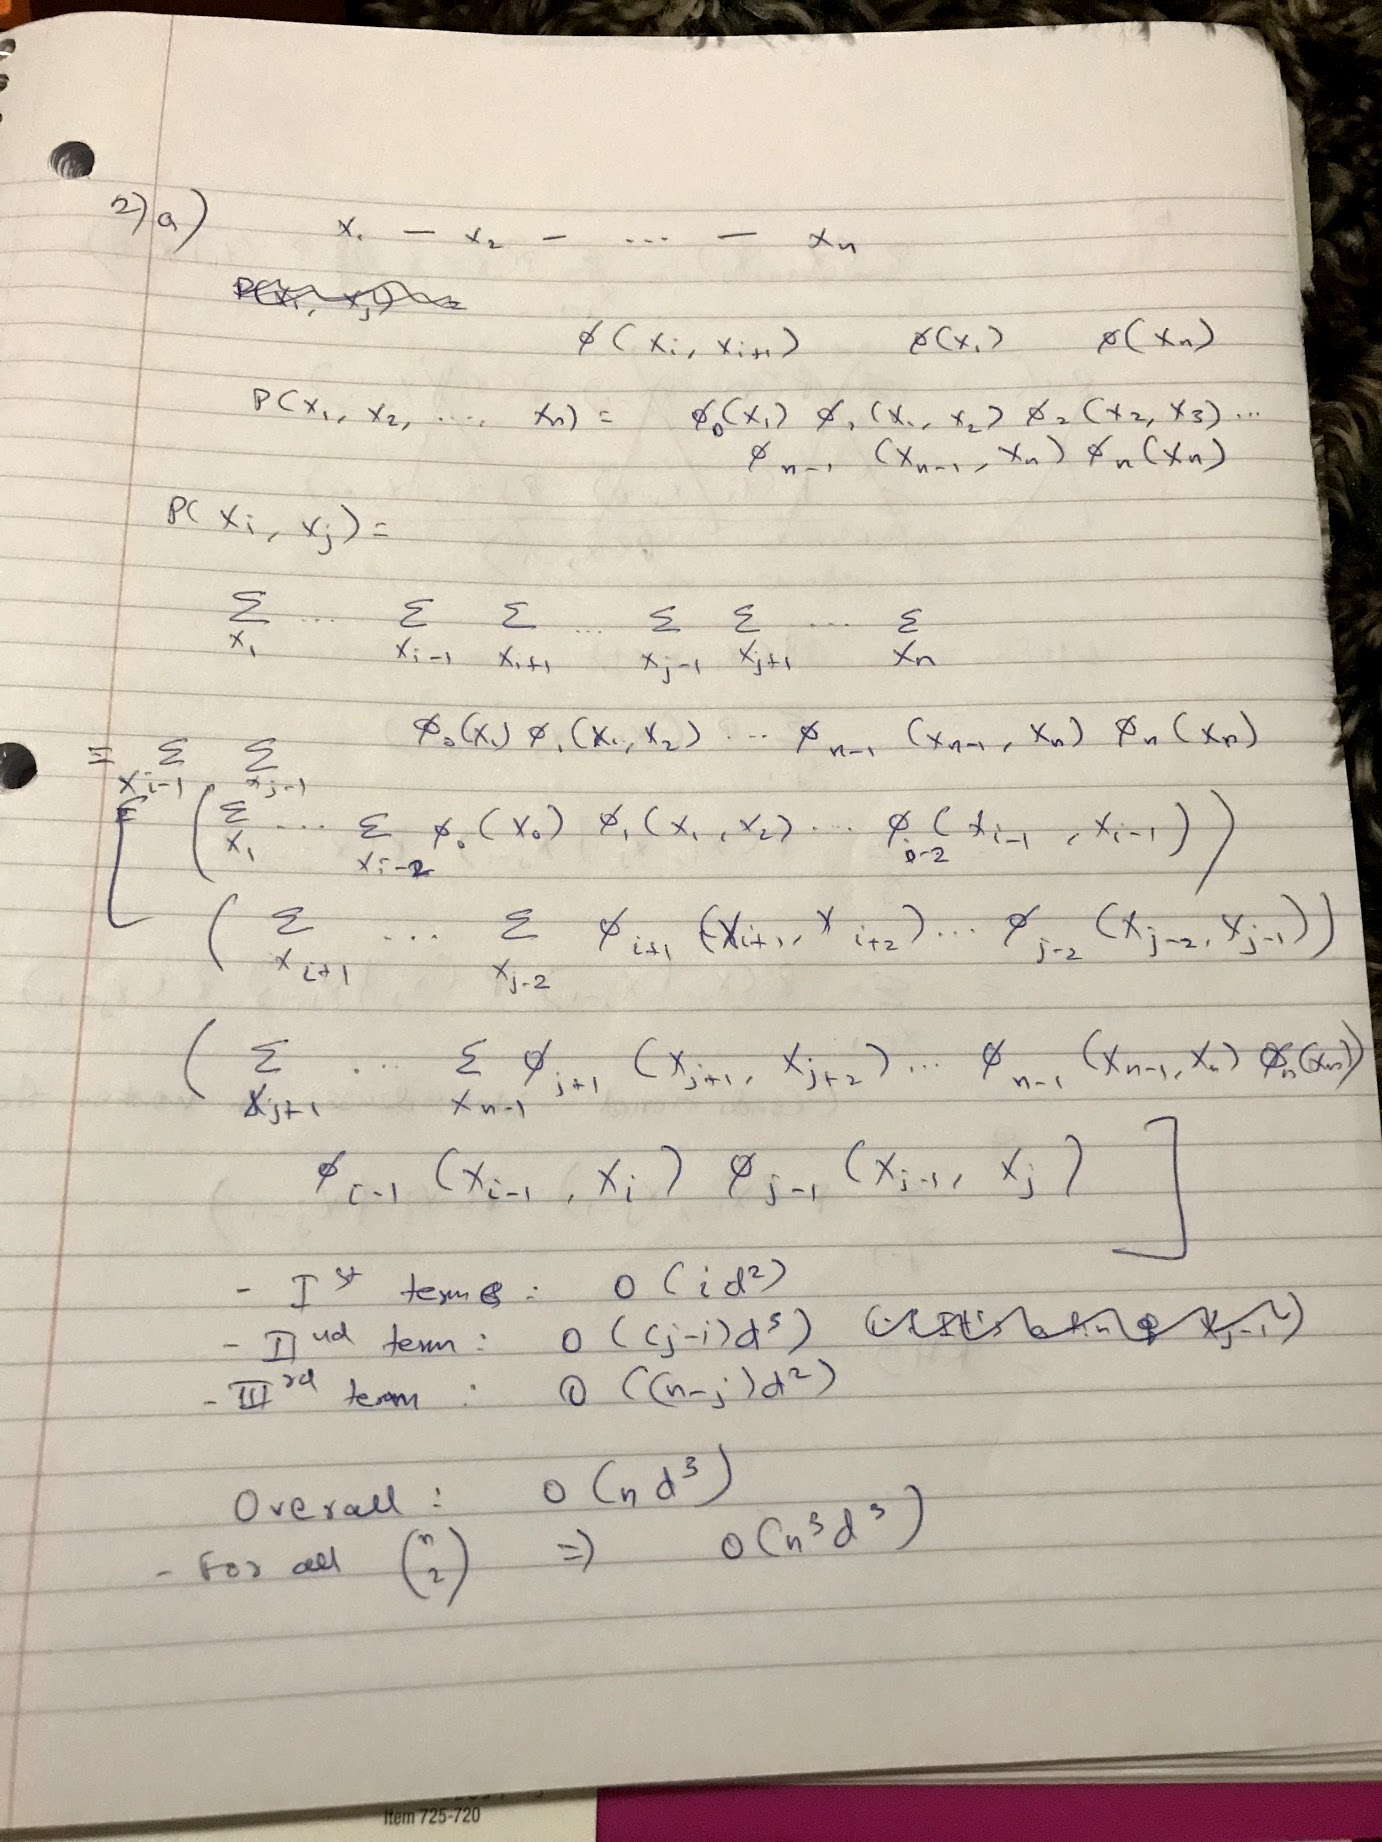 2) a) X₁ — X₂ — ... — Xₙ
ϕ(Xᵢ, Xᵢ₊₁) ϕ(X₁) ϕ(Xₙ)
P(X₁, X₂, ...., Xₙ) = ϕ₀(X₁) ϕ₁(X₁, X₂) ϕ₂(X₂, X₃)...
ϕₙ₋₁ (Xₙ₋₁, Xₙ) ϕₙ(Xₙ)
P(Xᵢ, Xⱼ) =
Σ ... Σ Σ ... Σ Σ ... Σ
X₁ Xᵢ₋₁ Xᵢ₊₁ Xⱼ₋₁ Xⱼ₊₁ Xₙ
ϕ₀(X₁) ϕ₁(X₁, X₂) ... ϕₙ₋₁ (Xₙ₋₁, Xₙ) ϕₙ(Xₙ)
= Σ Σ
Xᵢ₋₁ Xⱼ₋₁
[ ( Σ ... Σ ϕ₀(X₀) ϕ₁(X₁, X₂) ... ϕ ( Xᵢ₋₁ , Xᵢ₋₁) )
X₁ Xᵢ₋₂ ᵢ₋₂
( Σ ... Σ ϕᵢ₊₁ (Xᵢ₊₁, Xᵢ₊₂) ... ϕⱼ₋₂ (Xⱼ₋₂, Xⱼ₋₁))
Xᵢ₊₁ Xⱼ₋₂
( Σ ... Σ ϕⱼ₊₁ (Xⱼ₊₁, Xⱼ₊₂) ... ϕₙ₋₁ (Xₙ₋₁, Xₙ) ϕₙ(Xₙ))
Xⱼ₊₁ Xₙ₋₁
ϕᵢ₋₁ (Xᵢ₋₁, Xᵢ) ϕⱼ₋₁ (Xⱼ₋₁, Xⱼ) ]
- Iˢᵗ term : O (i d²)
- IIⁿᵈ term : O ((j-i)d³)
- IIIʳᵈ term : O ((n-j)d²)
Overall : O (n d³)
- For all (n 2) => O(n³d³)
Item 725-720